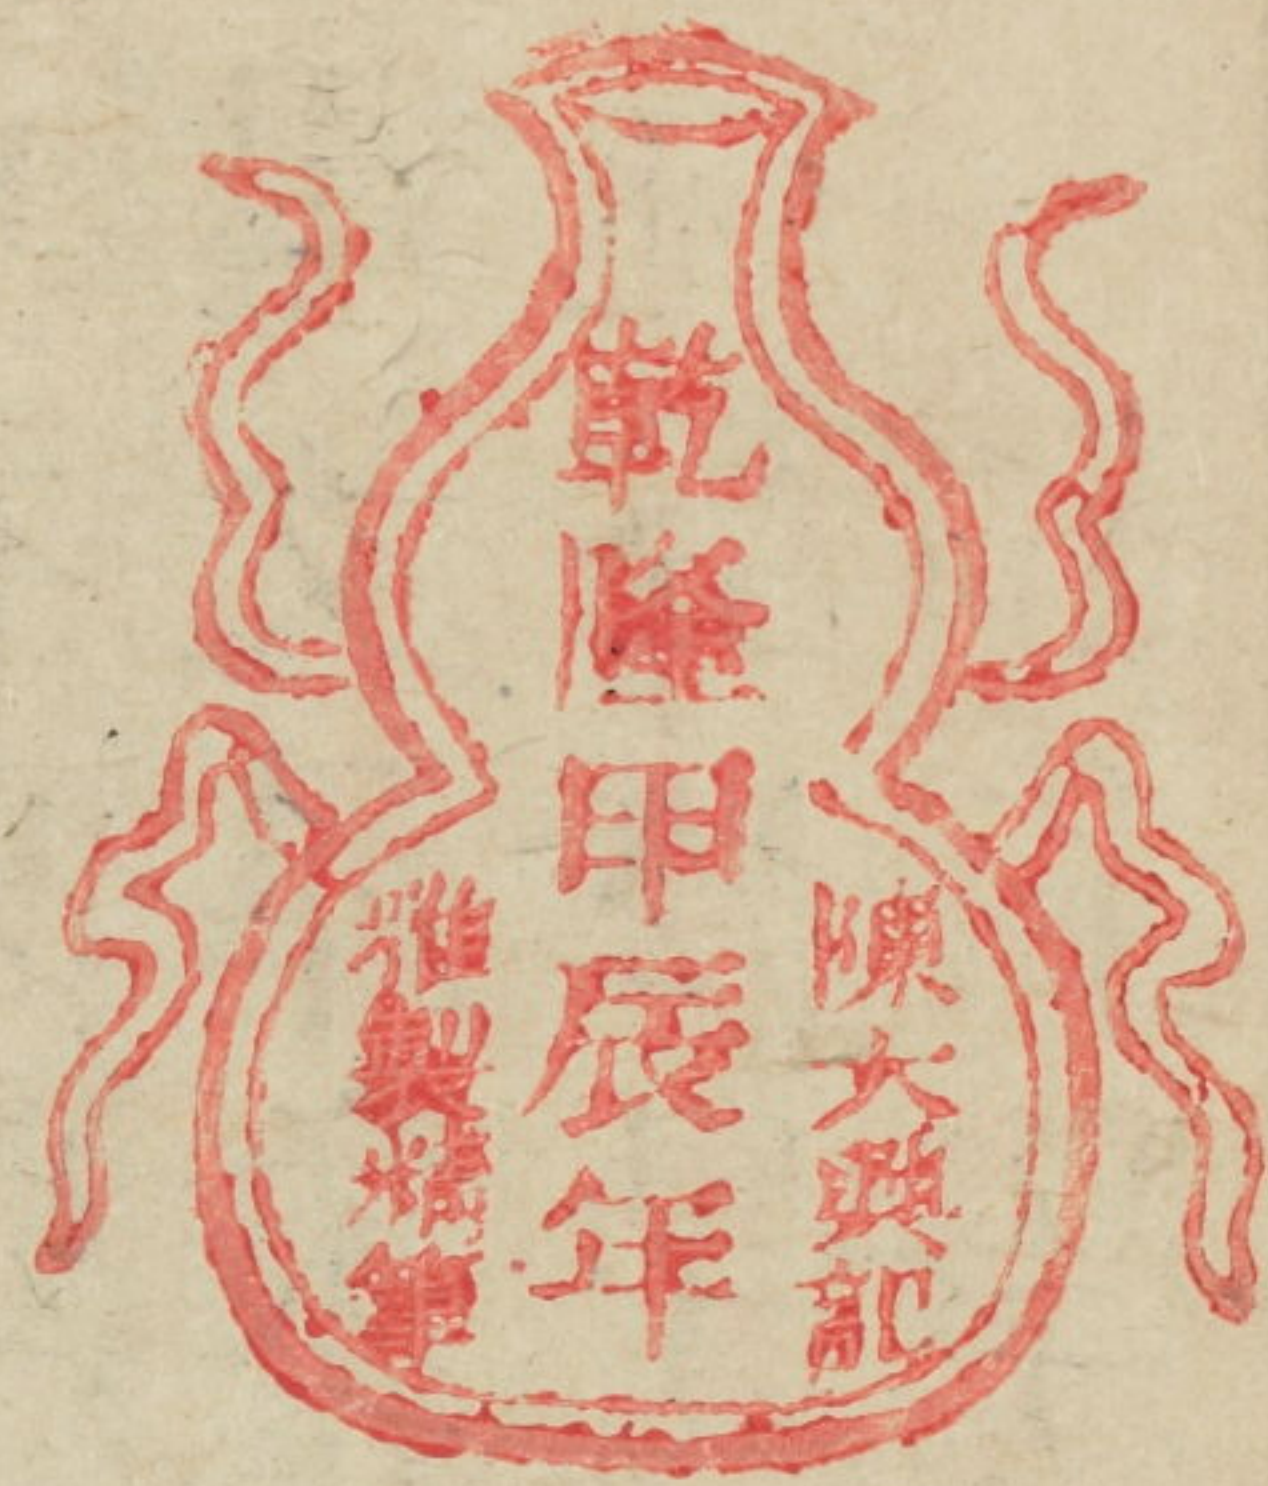 陳大興記
乾隆甲辰年
製精筆